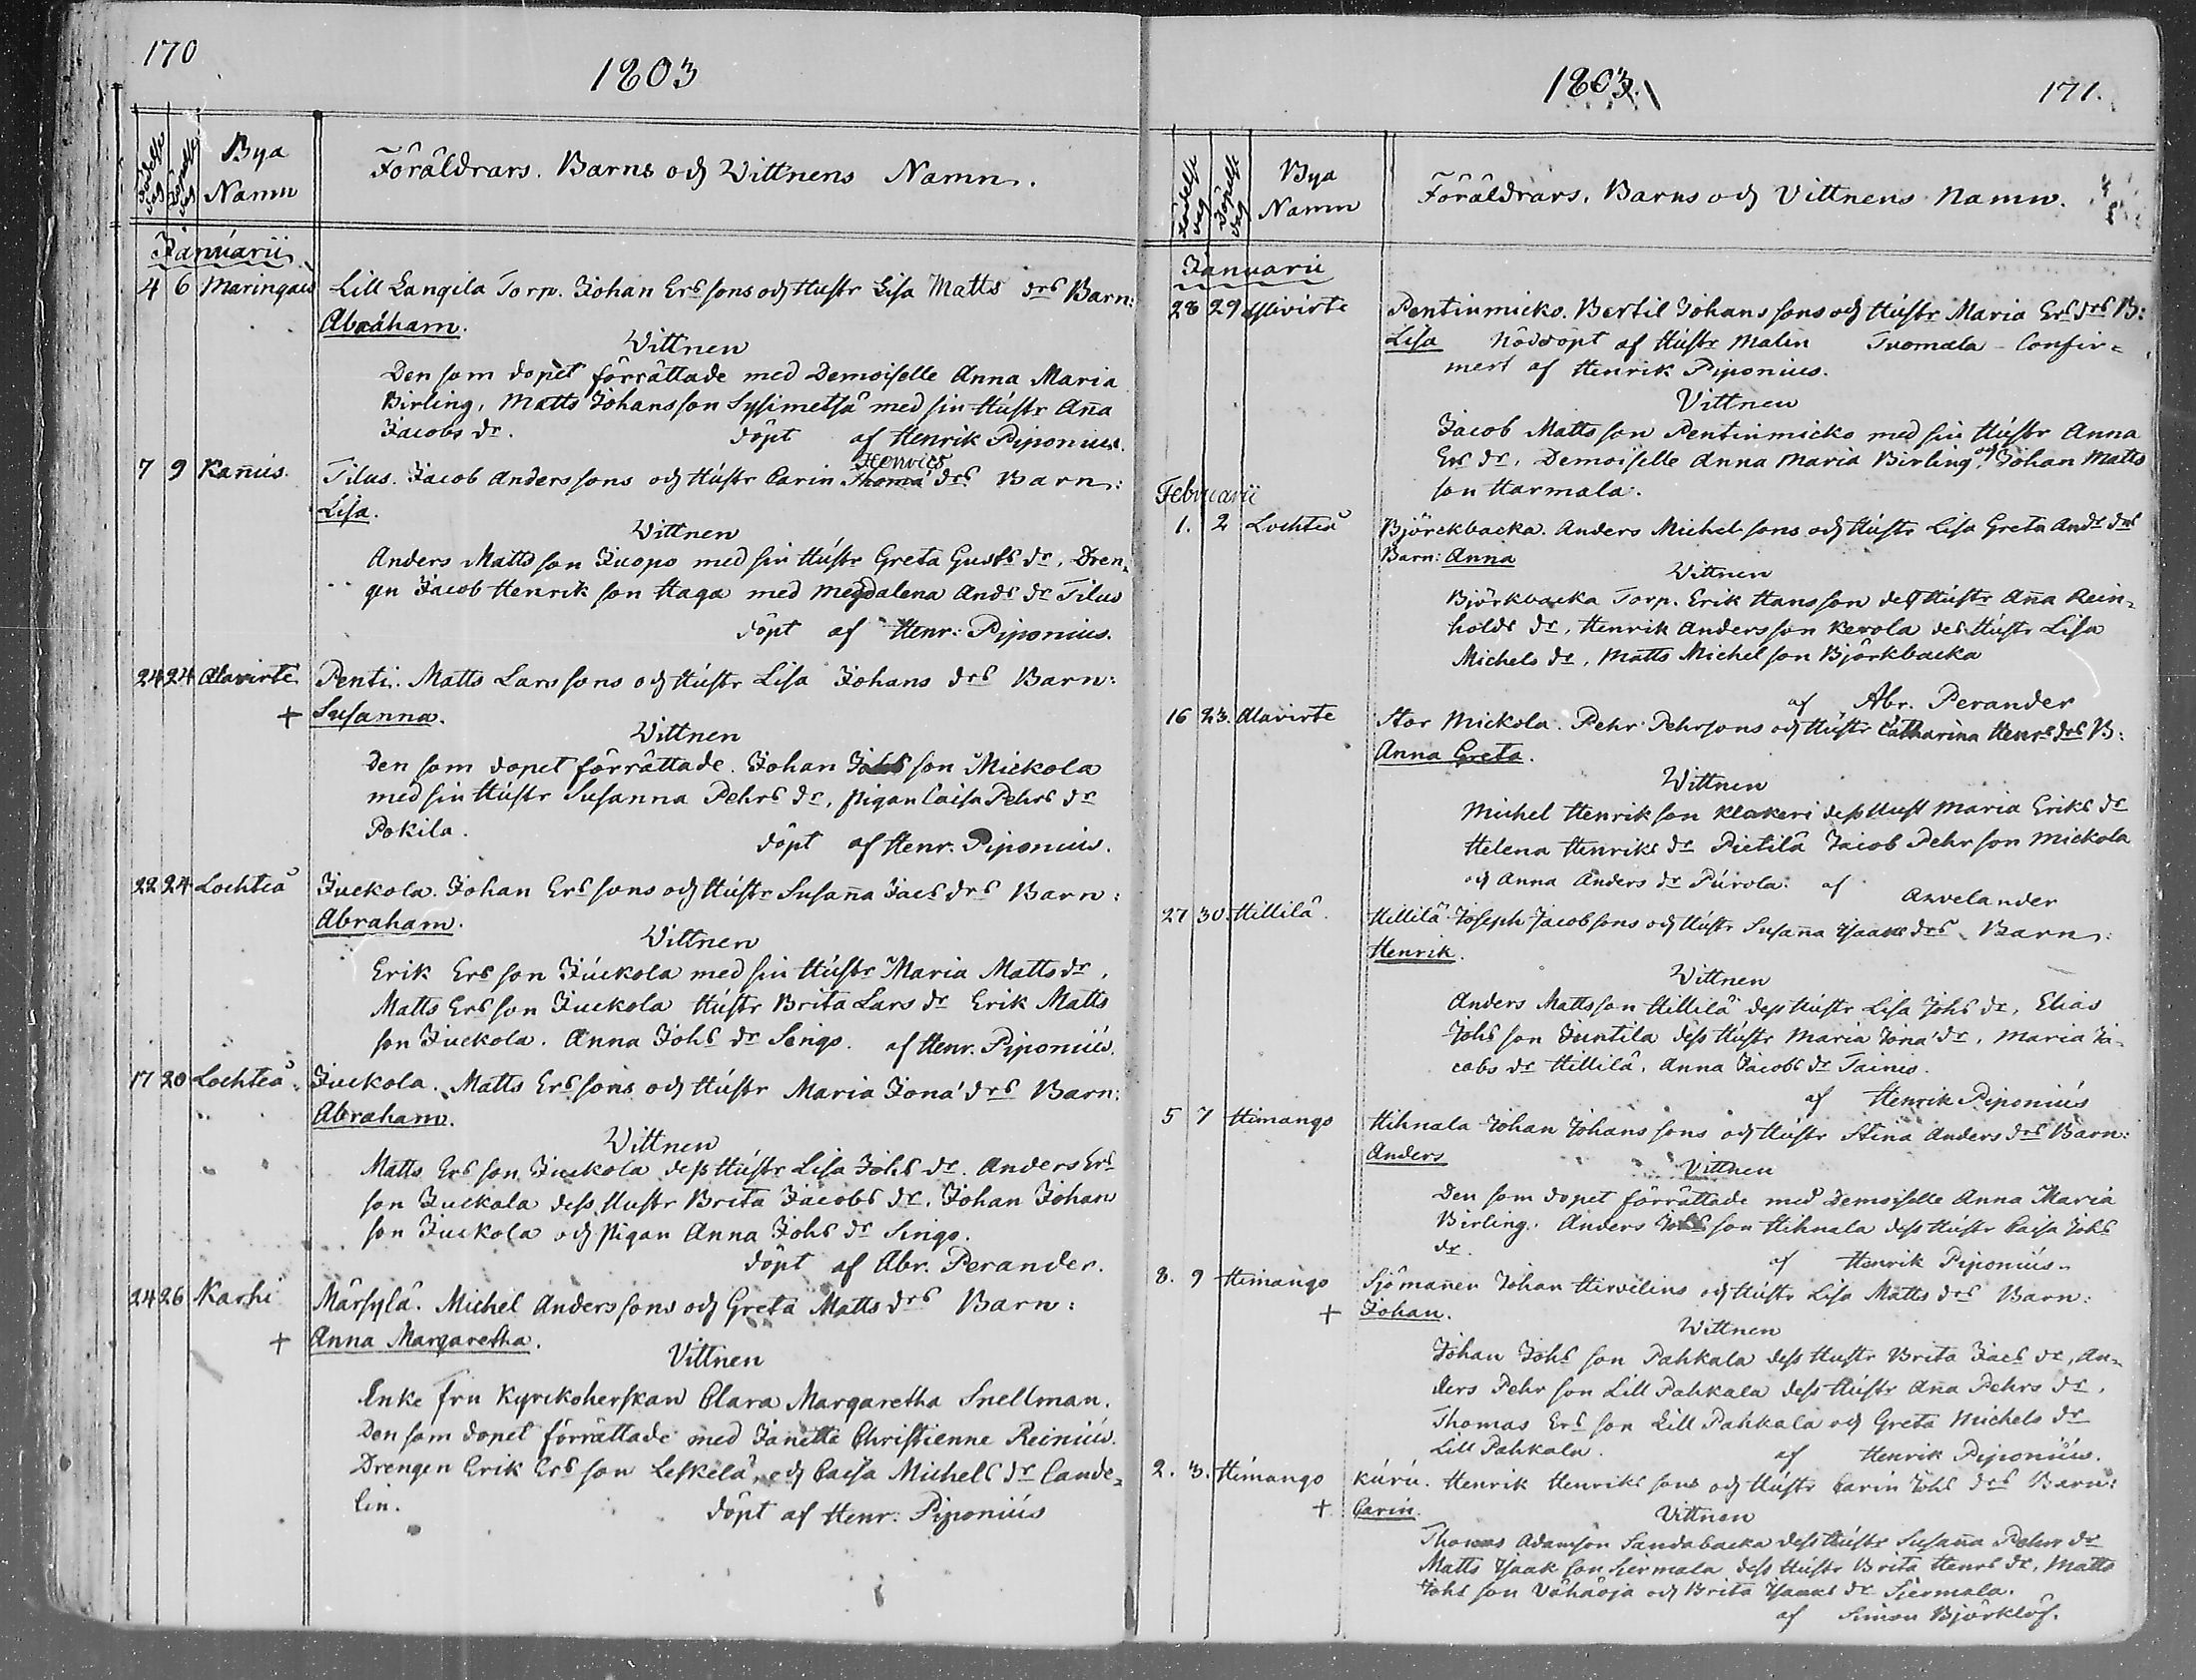 170
1803
Födelse dag
Döpelse dag
Bya Namn
Föräldrars. Barns och Wittnens Namn.
Januarii
4 6 Maringais Lill Langila Torp. Johan Ers sons och Hustr Lisa Matts drs Barn:
Abraham.
Wittnen
Den som dopet förrättade med Demoiselle Anna Maria
Birling, Matts Johansson Sysimetsä med sin Hustr Aña
Jacobs dr. döpt af Henrik Piponius.
Henrics
7 9 Kanus. Tilus. Jacob Anders sons och Hustr Carin Thoma drs Barn:
Lisa.
Wittnen
Anders Matts son Juopo med sin Hustr Greta Gusts dr, Dren-
gen Jacob Henrik son Haga med Magdalena Ands dr Tilus
döpt af Henr: Piponius.
24 24 Alavirte Penti. Matts Lars sons och Hustr Lisa Johans drs Barn:
+ Susanna.
Wittnen
Den som dopet förrättade. Johan Johs son Mickola
med sin Hustr Susanna Pehrs dr, pigan Caisa Pehrs dr
Pokila. döpt af Henr. Piponius.
22 24 Lochteå Juckola. Johan Ers sons och Hustr Susaña Jacs drs Barn:
Abraham.
Wittnen
Erik Ers son Juckola med sin Hustr Maria Matts dr,
Matts Ers son Juckola Hustr Brita Lars dr Erik Matts
son Juckola. Anna Johs dr Sengo. af Henr. Piponius.
17 20 Lochteå. Juckola. Matts Ers sons och Hustr Maria Jona drs Barn:
Abraham.
Wittnen
Matts Ers son Juckola dess Hustr Lisa Johs dr. Anders Ers
son Juckola dess Hustr Brita Jacobs dr, Johan Johan
son Juckola och pigan Anna Johs dr Sengo.
döpt af Abr. Perander.
24 26 Karhi Märsylä. Michel Anders sons och Greta Matts drs Barn:
+ Anna Margaretha.
Vittnen
Enke fru Kyrckoherskan Clara Margaretha Snellman.
Den som dopet förrättade med Janetta Christienne Reinius.
Drengen Erik Ers son Leskelä, och Caisa Michels dr Cande-
lin. döpt af Henr: Piponius
1803.
171.
Födelse dag
Döpelse dag
Bya Namn
Föräldrars, Barns och Vittnens Namn.
Januarii
28 29 Ylivirte Pentinmicko. Bertil Johans sons och Hustr Maria Ers drs B:
Lisa Nöddöpt af Hustr Malin Tuomala - Confir-
mert af Henrik Piponius.
Vittnen
Jacob Matts son Pentinmicko med sin Hustr Anna
Ers dr, Demoiselle Anna Maria Birling och Johan Matts
son Harmala.
Februarii
1. 2 Lochteå Björckbacka. Anders Michel sons och Hustr Lisa Greta Ands drs
Barn: Anna
Vittnen
Björkbacka Torp. Erik Hansson dess Hustr Aña Rein-
holds dr, Henrik Andersson Kerola des Hustr Lisa
Michels dr, Matts Michel son Björkbacka
af Abr. Perander
16 23. Alavirte Stor Mickola. Pehr Pehrsons och Hustr Catharina Henrs drs B:
Anna Greta.
Wittnen
Michel Henrik son Klakeri dess Hust Maria Eriks dr
Helena Henriks dr Pietilä Jacob Pehr son Mickola
och Anna Anders dr Purola. af Arvelander
27 30. Hillilä. Hillilä Joseph Jacobsons och Hustr Susaña Isaacs drs Barn:
Henrik.
Wittnen
Anders Mattsson Hillilä dess Hustr Lisa Johs dr, Elias
Johs son Juntila dess Hustr Maria Jona dr, Maria Ja-
cobs dr Hillilä, Anna Jacobs dr Tainio.
af Henrik Piponius
5 7 Himango Hihnala Johan Johans sons och Hustr Stina Anders drs Barn:
Anders
Vittnen
Den som dopet förrättade med Demoiselle Anna Maria
Birling. Anders Johs son Hihnala dess Hustr Caisa Johs
dr. af Henrik Piponius.
8. 9 Himango Sjömanen Johan Hirvelius och Hustr Lisa Matts drs Barn:
+ Johan.
Wittnen
Johan Johs son Pahkala dess Hustr Brita Jacs dr, An-
ders Pehr son Lill Pahkala dess Hustr Aña Pehrs dr,
Thomas Ers son Lill Pahkala och Greta Michels dr
Lill Pahkala. af Henrik Piponius.
2. 3. Himango Kuru. Henrik Henriks sons och Hustr Carin Johs drs Barn:
+ Carin.
Vittnen
Thomas Adamson Sandabacka dess Hustr Susaña Pehrs dr
Matts Isaak son Siermala dess Hustr Brita Henrs dr, Matts
Johs son Vähäoja och Brita Isaaks dr Siermala.
af Simon Björklöf.